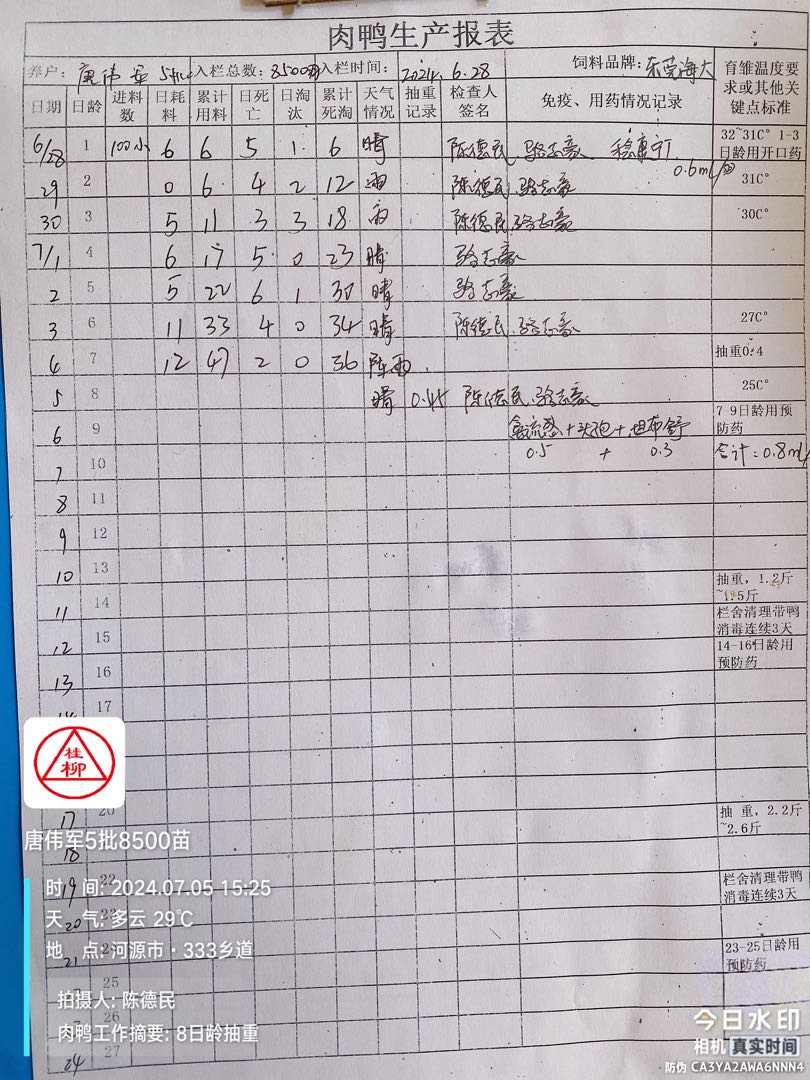 肉鸭生产报表
养户: 唐伟军 5批 入栏总数: 8500羽 入栏时间: 2024. 6.28 饲料品牌: 东莞海大 育雏温度要求或其他关键点标准
日期 日龄 进料数 日耗料 累计用料 日死亡 日淘汰 累计死淘 天气情况 抽重记录 检查人签名 免疫、用药情况记录
6/28 1 100小 6 6 5 1 6 晴 陈德民 骆志豪 稳康宁 0.6ml/羽 32~31C° 1-3日龄用开口药
29 2 0 6 4 2 12 雨 陈德民.骆志豪 31C°
30 3 5 11 3 3 18 雨 陈德民.骆志豪 30C°
7/1 4 6 17 5 0 23 晴 骆志豪
2 5 5 22 6 1 30 晴 骆志豪
3 6 11 33 4 0 34 晴 陈德民.骆志豪 27C°
4 7 12 47 2 0 36 阵雨 抽重0.4
5 8 晴 0.45 陈德民.骆志豪 25C°
6 9 禽流感+头孢+坦布舒 7 9日龄用预防药
7 10 0.5 + 0.3 合计:0.8ml
8 11
9 12
10 13 抽重, 1.2斤~1.5斤
11 14 栏舍清理带鸭消毒连续3天
12 15 14-16日龄用预防药
13 16
17
桂柳
17 20 抽 重, 2.2斤~2.6斤
唐伟军5批8500苗
18
19 22 栏舍清理带鸭消毒连续3天
时 间: 2024.07.05 15:25
20 23
天 气: 多云 29℃
21 23-25日龄用预防药
地 点: 河源市·333乡道
25
拍摄人: 陈德民
肉鸭工作摘要: 8日龄抽重
24 27
今日水印
相机 真实时间
防伪 CA3YA2AWA6NNN4